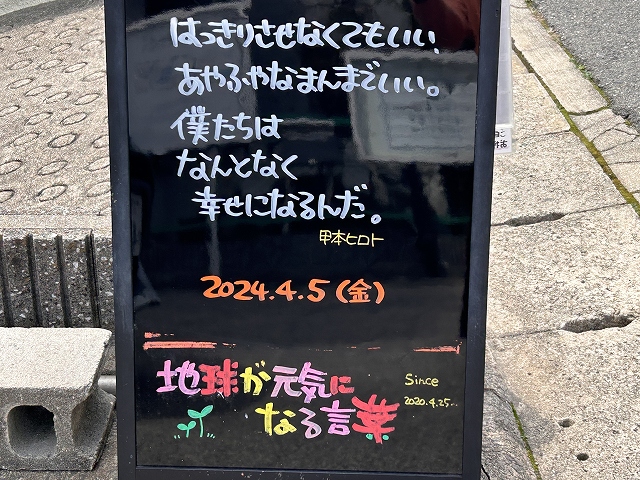 はっきりさせなくてもいい、
あやふやなまんまでいい。
僕たちは
なんとなく
幸せになるんだ。
甲本ヒロト
2024.4.5(金)
地球が元気に
なる言葉
Since
2020.4.25〜